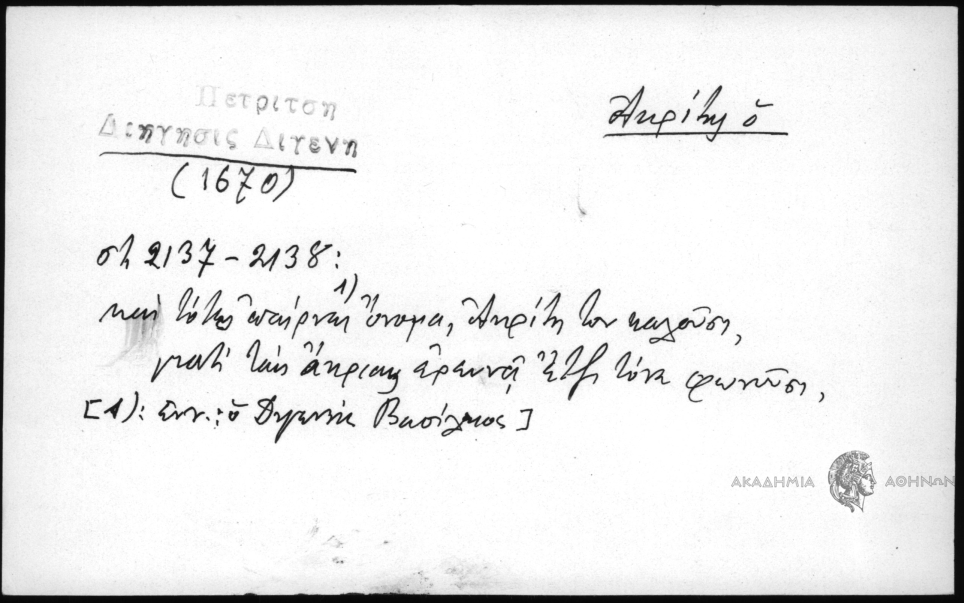 Πετρίτση
Διήγησις Διγενή
(1670)
Ἀκρίτης ὁ
στ 2137 - 2138:
καὶ τότες ἐπαίρνει 1) ὄνομα, Ἀκρίτη τον καλοῦσι,
γιατί τὰς ἄκριας ἐρευνᾷ ἔτζι τόνε φωνοῦσι,
[1): ἐνν.: ὁ Διγενὴς Βασίλειος]
ΑΚΑΔΗΜΙΑ ΑΘΗΝΩΝ